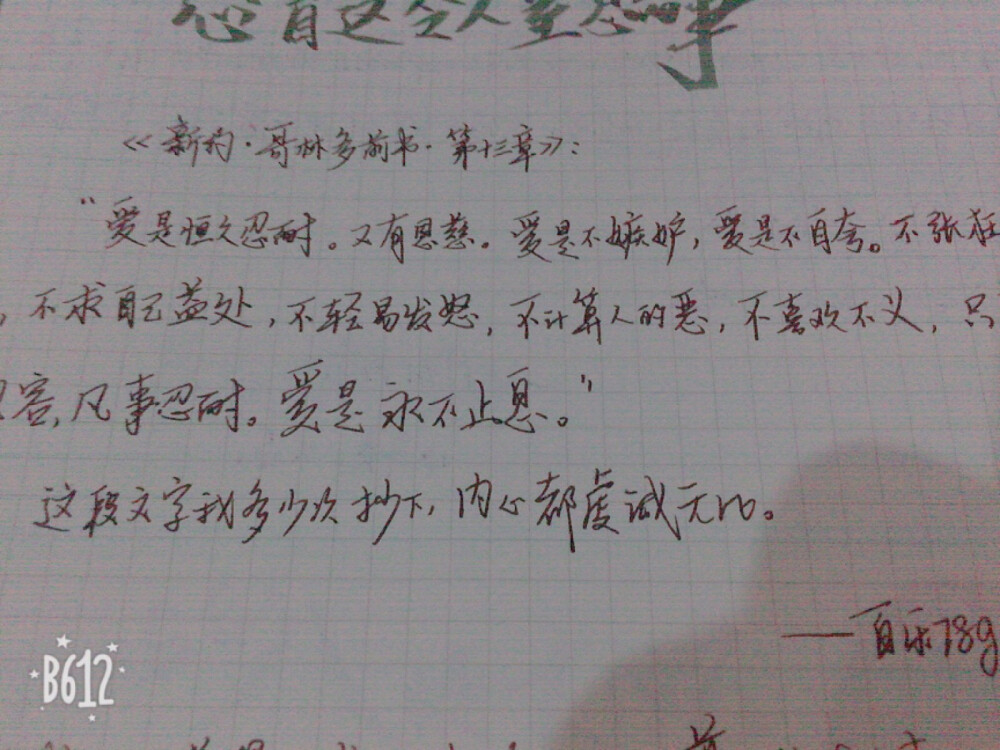 《新约·哥林多前书·第十三章》:
“爱是恒久忍耐。又有恩慈。爱是不嫉妒,爱是不自夸。不张狂
,不求自己益处,不轻易发怒,不计算人的恶,不喜欢不义,只
容,凡事忍耐。爱是永不止息。”
这段文字我多少次抄下,内心都虔诚无比。
——百乐78g
B612